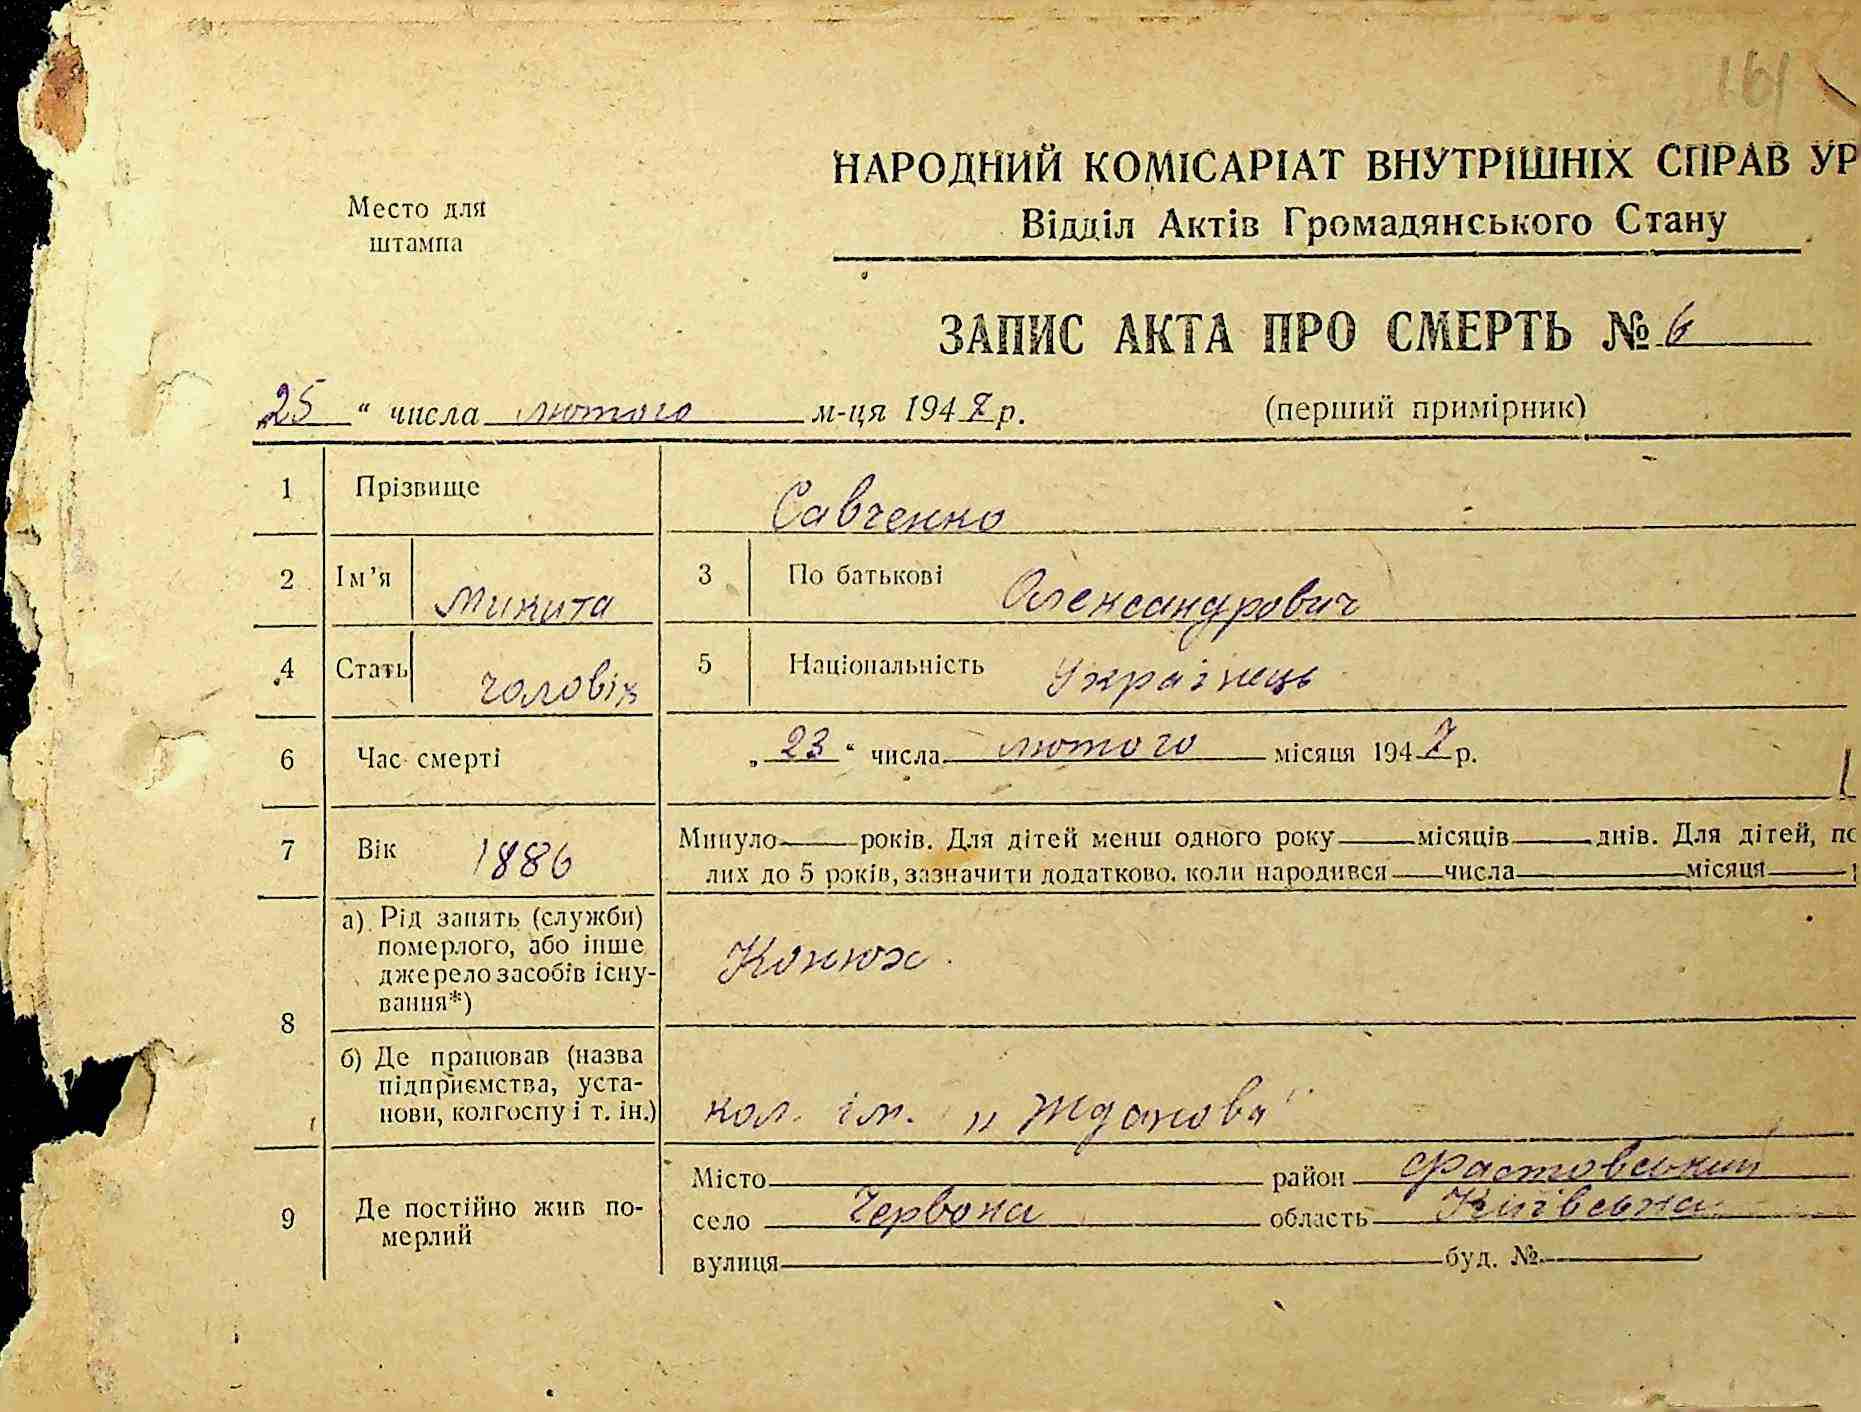 161
НАРОДНИЙ КОМІСАРІАТ ВНУТРІШНІХ СПРАВ УР
Место для
штампа
Відділ Актів Громадянського Стану
ЗАПИС АКТА ПРО СМЕРТЬ № 6
„25“ числа лютого м-ця 1947 р. (перший примірник)
1 Прізвище Савченко
2 Ім’я Микита 3 По батькові Олександрович
4 Стать чоловік 5 Національність Українець
6 Час смерті „23“ числа лютого місяця 1947 р.
7 Вік 1886 Минуло — років. Для дітей менш одного року — місяців — днів. Для дітей, по
лих до 5 років, зазначити додатково, коли народився — числа — місяця —
8 а) Рід занять (служби)
померлого, або інше
джерело засобів існу-
вання*) Конюх
б) Де працював (назва
підприємства, уста-
нови, колгоспу і т. ін.) кол. ім. „Жданова“
9 Де постійно жив по-
мерлий
Місто район Фастовський
село Червона область Київська
вулиця буд. №